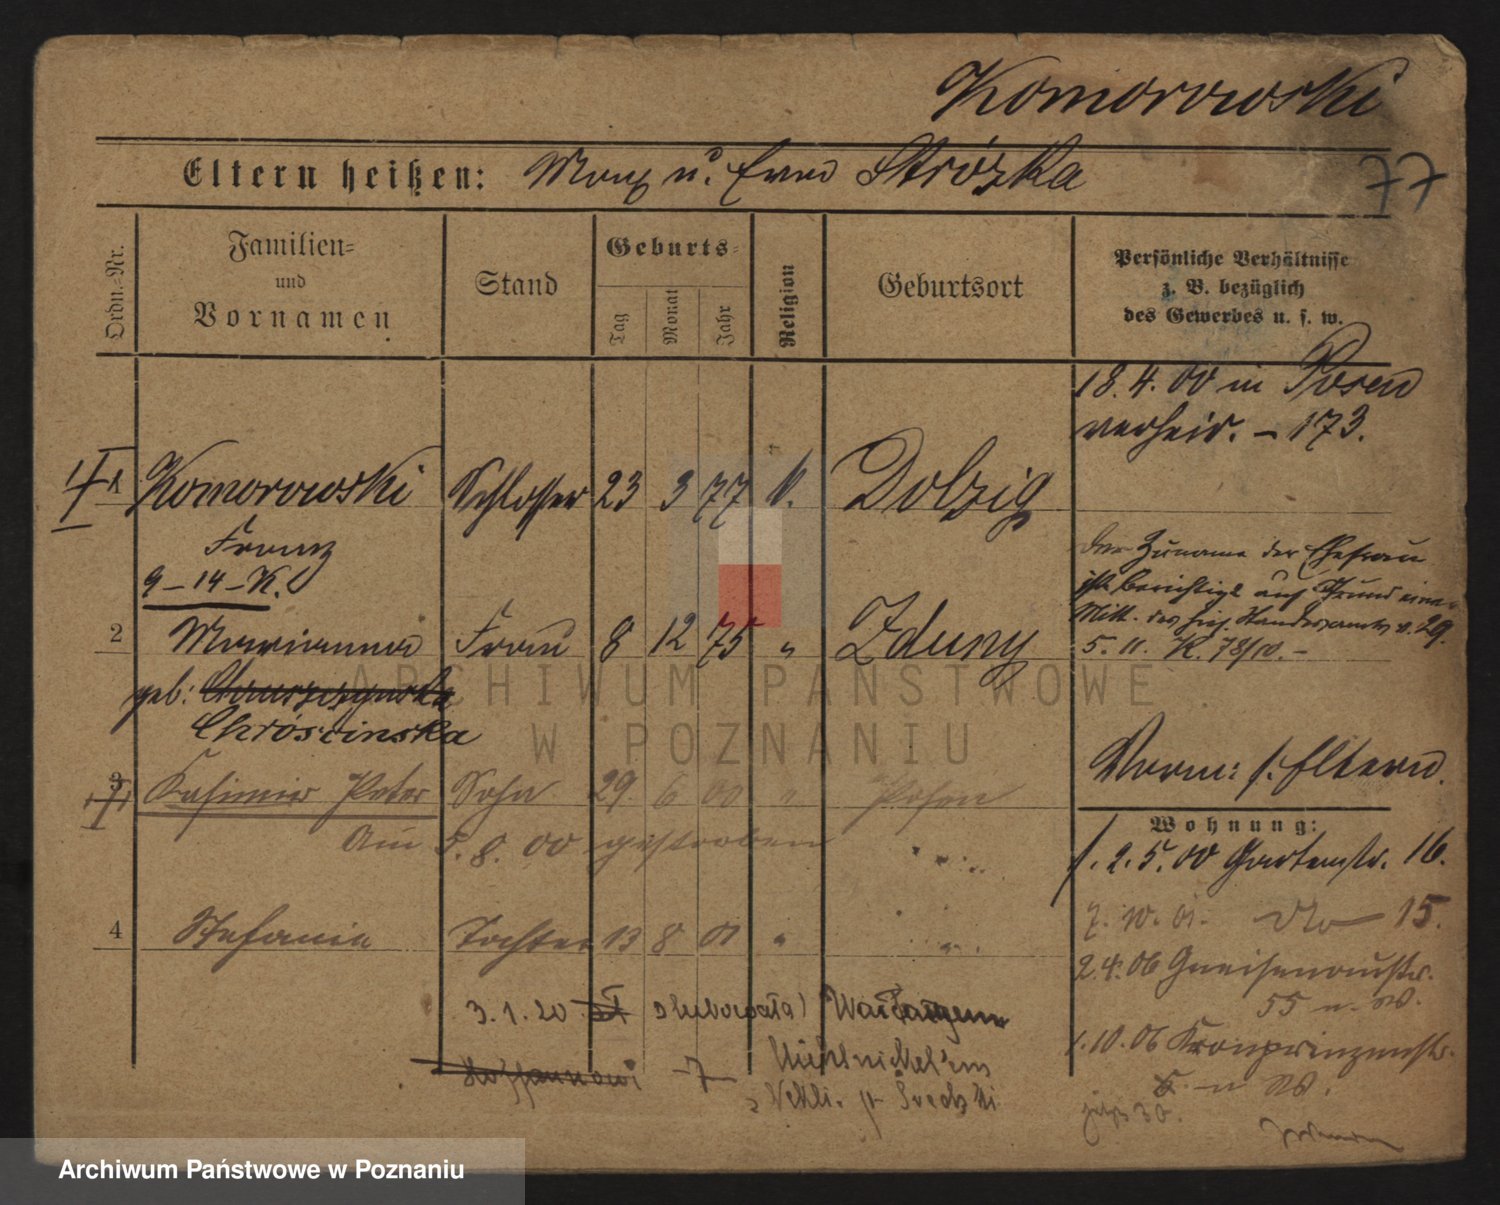 Komorowski
77
Eltern heißen: Marx u. Eva Strózka
Ordn.-Nr.
Familien-
und
Vornamen
Stand
Geburts-
Tag
Monat
Jahr
Religion
Geburtsort
Persönliche Verhältnisse
z. B. bezüglich
des Gewerbes u. s. w.
18.4.00 in Posen
verheir. – 173.
1 Komorowski Schlosser 23 3 77 k. Dolzig
Franz
9–14–K.
Der Zuname der Ehefrau
ist berichtigt auf Grund einer
Mitt. des hies. Standesamts v. 29.
5. 11. K. 78/10. –
2 Marianna Frau 8 12 75 " Zduny
geb:
Chróścinska
Vorm: s. Eltern.
3 Kasimir Peter Sohn 29. 6 00 " Posen
Am 5.8.00 gestorben
Wohnung:
1. 2.5.00 Gartenstr. 16.
7.10.01. dto 15.
4 Stefania Tochter 13 8 01 "
2.4.06 Gneisenaustr.
55 u. W.
3.1.20
1.10.06 Kronprinzenstr.
– 7 –
ARCHIWUM PAŃSTWOWE
W POZNANIU
Archiwum Państwowe w Poznaniu